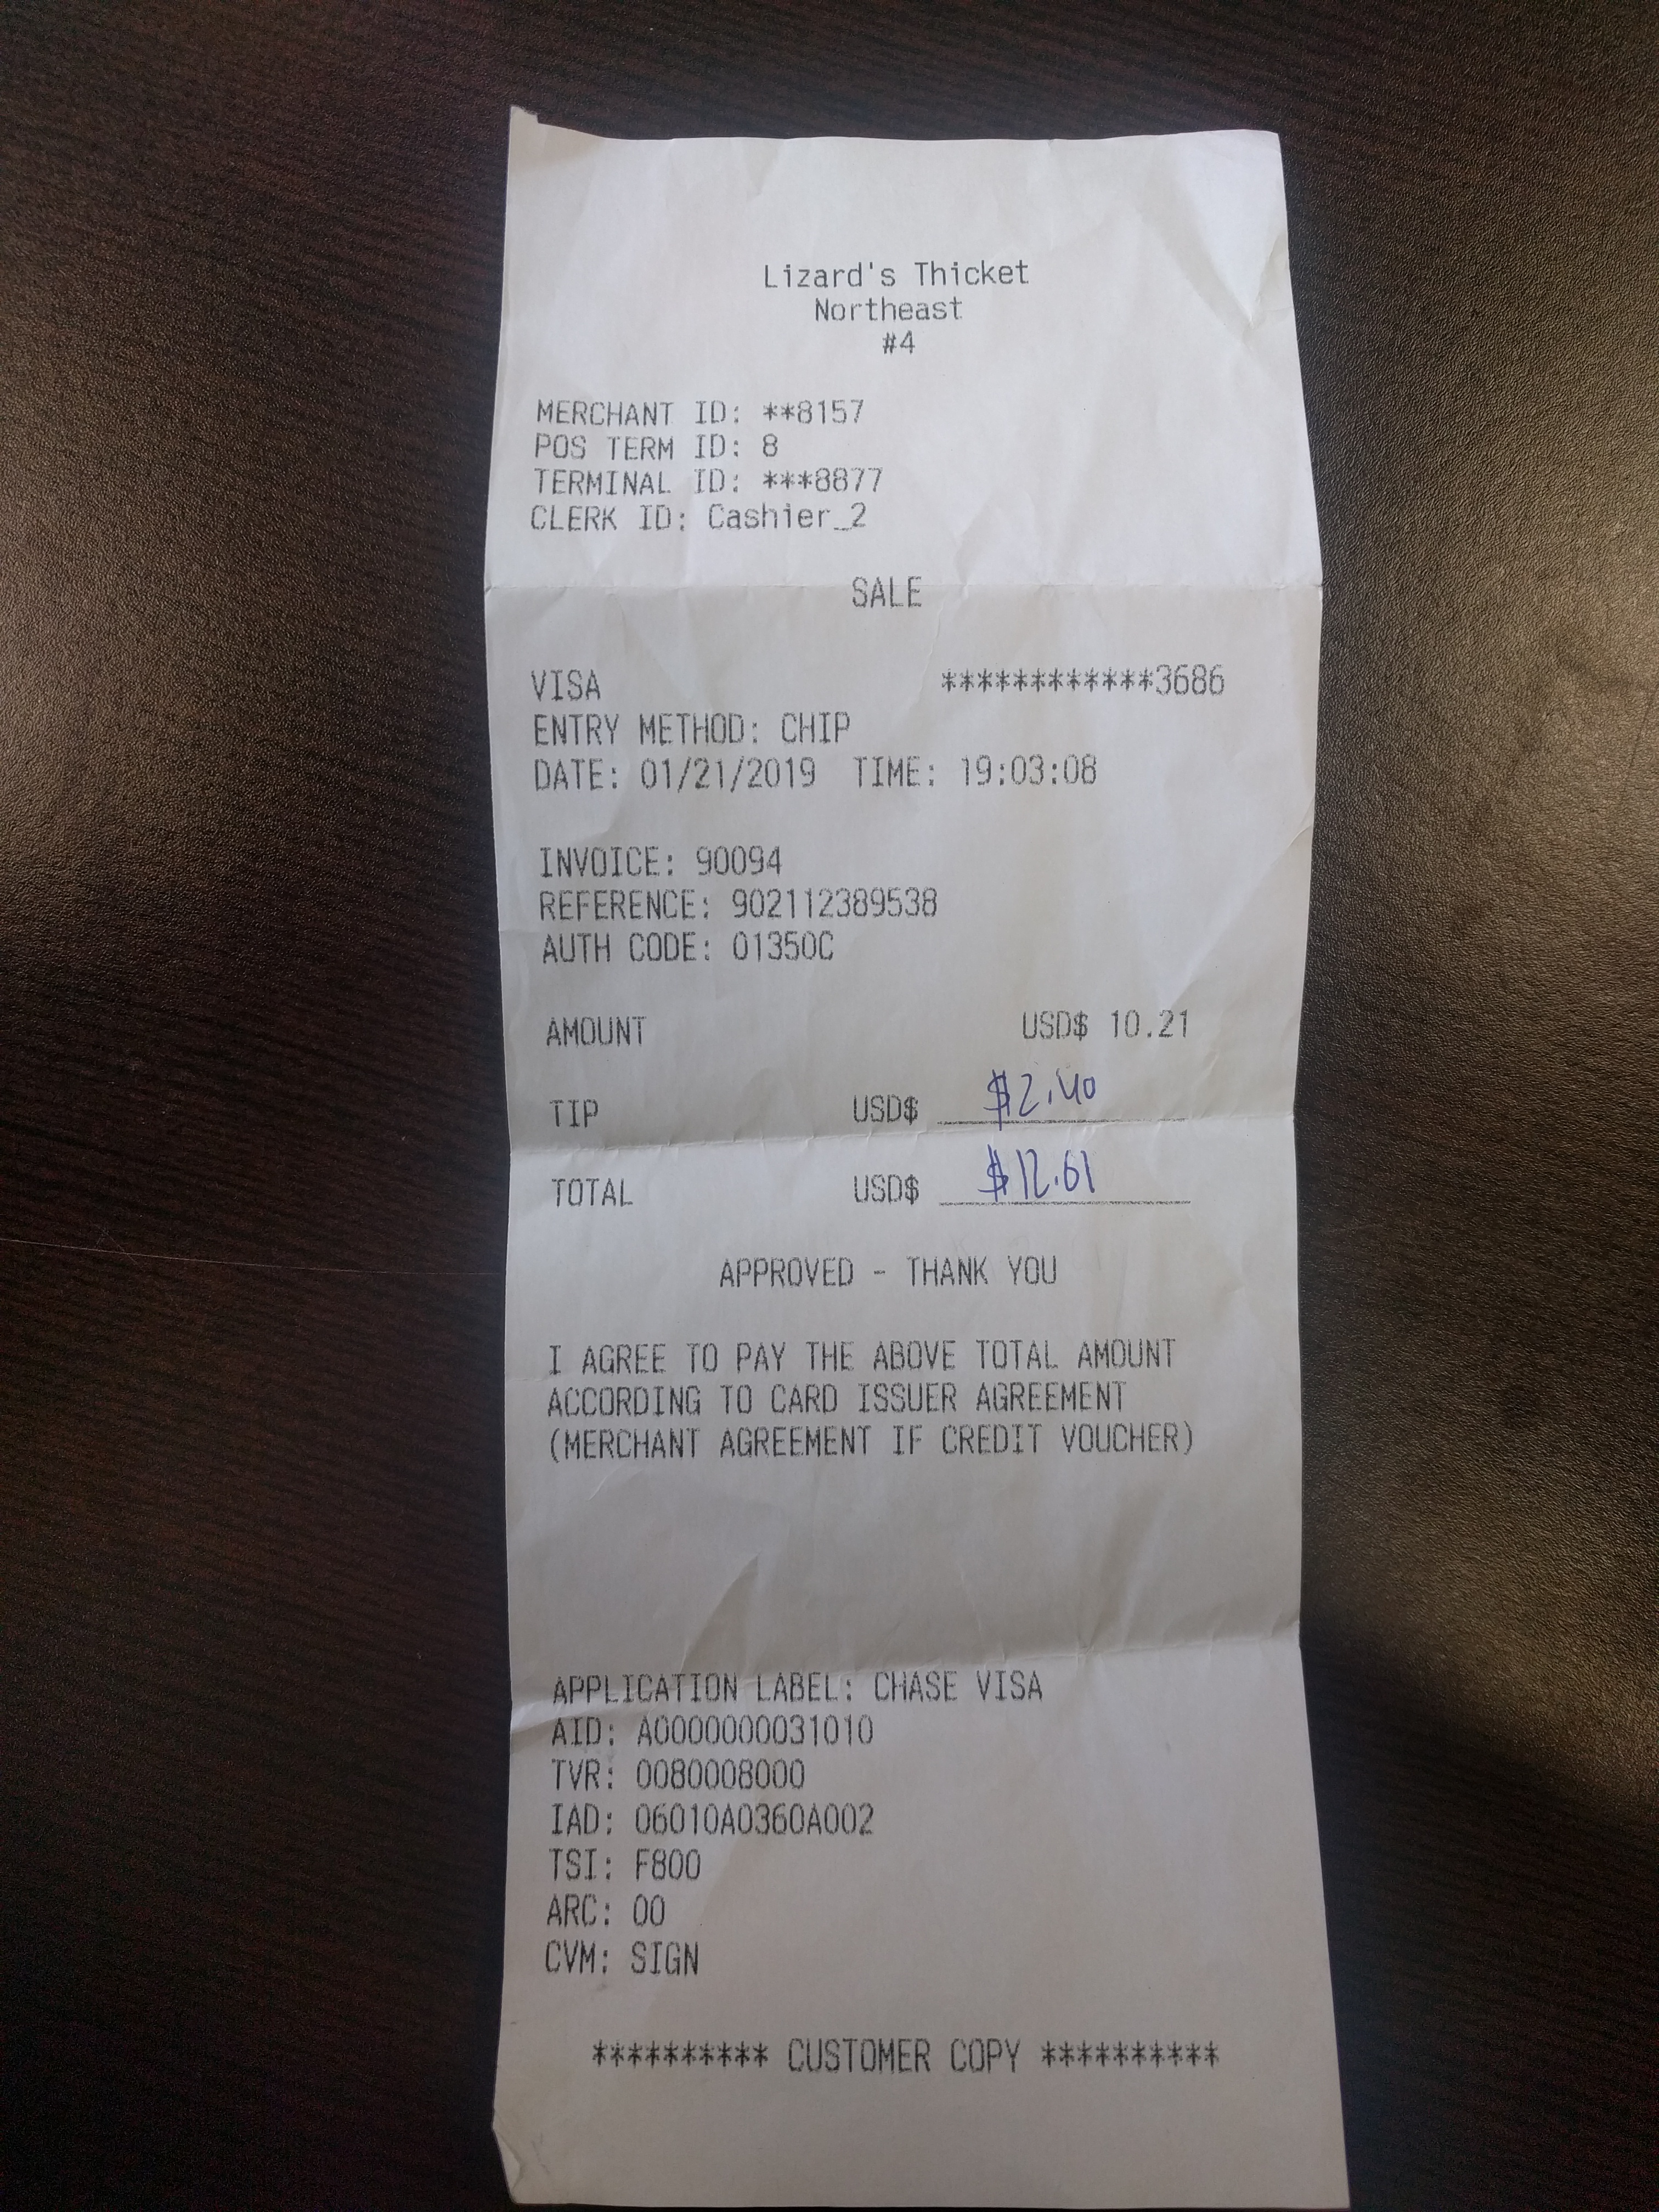 Lizard's Thicket
Northeast
#4
MERCHANT ID: **8157
POS TERM ID: 8
TERMINAL ID: ***8877
CLERK ID: Cashier_2
SALE
VISA ************3686
ENTRY METHOD: CHIP
DATE: 01/21/2019 TIME: 19:03:08
INVOICE: 90094
REFERENCE: 902112389538
AUTH CODE: 01350C
AMOUNT USD$ 10.21
TIP USD$ $2.40
TOTAL USD$ $12.61
APPROVED - THANK YOU
I AGREE TO PAY THE ABOVE TOTAL AMOUNT
ACCORDING TO CARD ISSUER AGREEMENT
(MERCHANT AGREEMENT IF CREDIT VOUCHER)
APPLICATION LABEL: CHASE VISA
AID: A0000000031010
TVR: 0080008000
IAD: 06010A0360A002
TSI: F800
ARC: 00
CVM: SIGN
********** CUSTOMER COPY **********